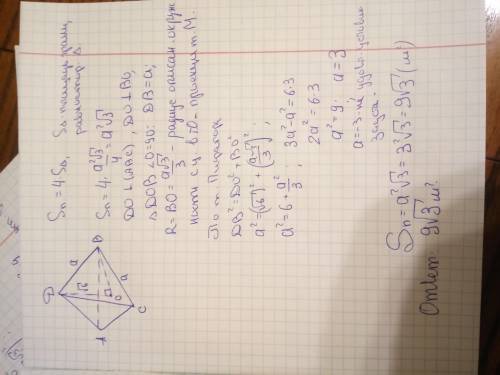 Sп = 4·S△, S△ площадь грани,
Sп = 4· a²√3/4 = a²√3
DO ⊥ (ABC), DO ⊥ BO,
△DOB ∠O=90°: DB=a;
R = BO = a√3/3 - радиус описан. окруж
ности с ц. в т.О - проекция т.
По т. Пифагора
DB² = DO² + BO²
a² = (√6)² + (a√3/3)²;
a² = 6 + a²/3; 3a² - a² = 6·3
2a² = 6·3
a² = 9; a = 3
a = -3 - не удовл. условию
Sп = a²√3 = 3²√3 = 9√3 (м²)
Ответ: 9√3 м²
D
a
B
√6
a
O
A
C